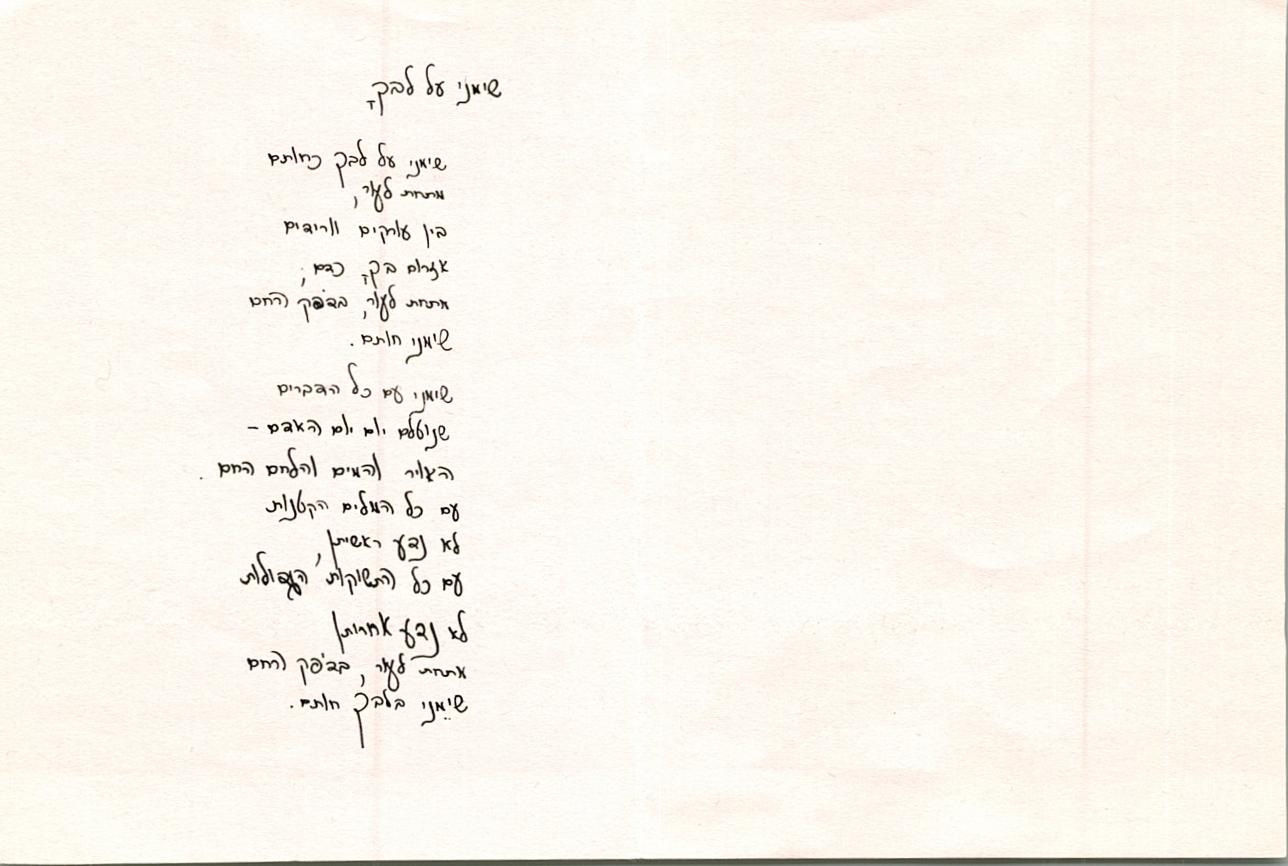 שימני על לבךָ
שימני על לבך כחותם
מתחת לעור,
בין עורקים וורידים
אזרום בךָ כדם;
מתחת לעור, בדֹפק הרחם
שימני חותם.
שימני עם כל הדברים
שנוטלם יום יום האדם –
האויר והמים והלחם החם.
עם כל המלים הקטנות
לא נדע ראשיתן,
עם כל התשוקות הגדולות
לא נדע אחריתן
מתחת לעור, בדֹפק הרחם
שימֵני בלבך חותם.